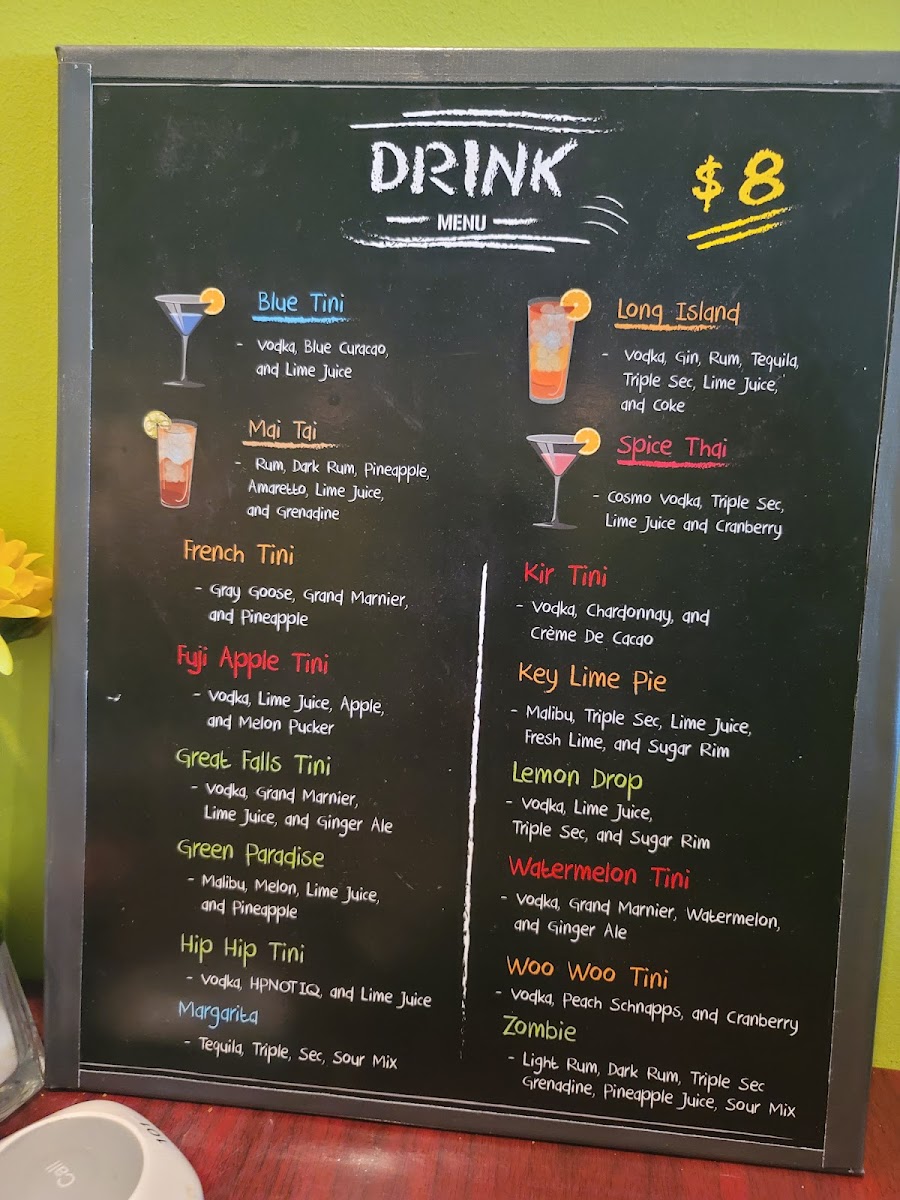 DRINK
MENU
$8
Blue Tini
- Vodka, Blue Curacao,
and Lime Juice
Mai Tai
- Rum, Dark Rum, Pineapple,
Amaretto, Lime Juice,
and Grenadine
Long Island
- Vodka, Gin, Rum, Tequila,
Triple Sec, Lime Juice,
and Coke
Spice Thai
- Cosmo Vodka, Triple Sec,
Lime Juice and Cranberry
French Tini
- Gray Goose, Grand Marnier,
and Pineapple
Fuji Apple Tini
- Vodka, Lime Juice, Apple,
and Melon Pucker
Great Falls Tini
- Vodka, Grand Marnier,
Lime Juice, and Ginger Ale
Green Paradise
- Malibu, Melon, Lime Juice,
and Pineapple
Hip Hip Tini
- Vodka, HPNOTIQ, and Lime Juice
Margarita
- Tequila, Triple, Sec, Sour Mix
Kir Tini
- Vodka, Chardonnay, and
Crème De Cacao
Key Lime Pie
- Malibu, Triple Sec, Lime Juice,
Fresh Lime, and Sugar Rim
Lemon Drop
- Vodka, Lime Juice,
Triple Sec, and Sugar Rim
Watermelon Tini
- Vodka, Grand Marnier, Watermelon,
and Ginger Ale
Woo Woo Tini
- Vodka, Peach Schnapps, and Cranberry
Zombie
- Light Rum, Dark Rum, Triple Sec
Grenadine, Pineapple Juice, Sour Mix
101
Call